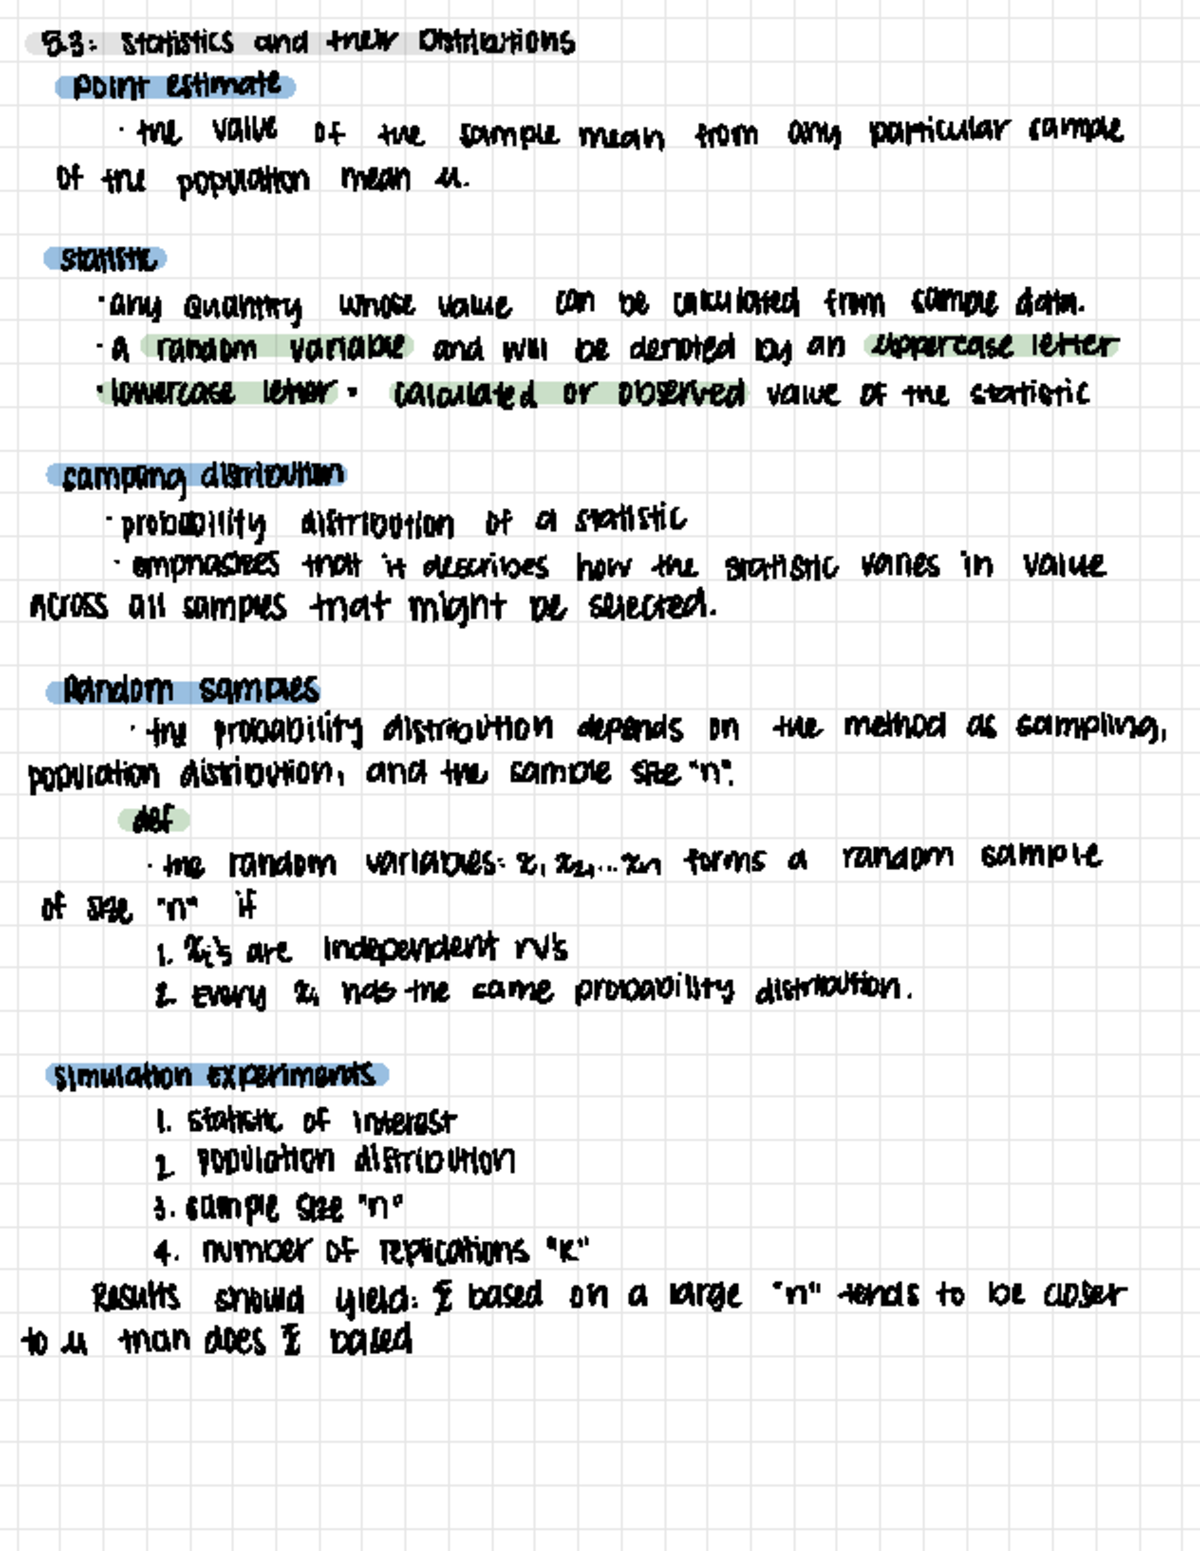 5.3: Statistics and their Distributions
point estimate
· the value of the sample mean from any particular sample
of the population mean μ.
statistic
· any quantity whose value can be calculated from sample data.
· a random variable and will be denoted by an uppercase letter
· lowercase letter · calculated or observed value of the statistic
sampling distribution
· probability distribution of a statistic
· emphasizes that it describes how the statistic varies in value
across all samples that might be selected.
Random samples
· the probability distribution depends on the method as sampling,
population distribution, and the sample size "n".
def
· the random variables: x₁ x₂,...xn forms a random sample
of size "n" if
1. xᵢ's are independent rv's
2. Every xᵢ has the same probability distribution.
simulation experiments
1. statistic of interest
2. population distribution
3. sample size "n"
4. number of replications "K"
Results should yield: x̄ based on a large "n" tends to be closer
to μ than does x̄ based